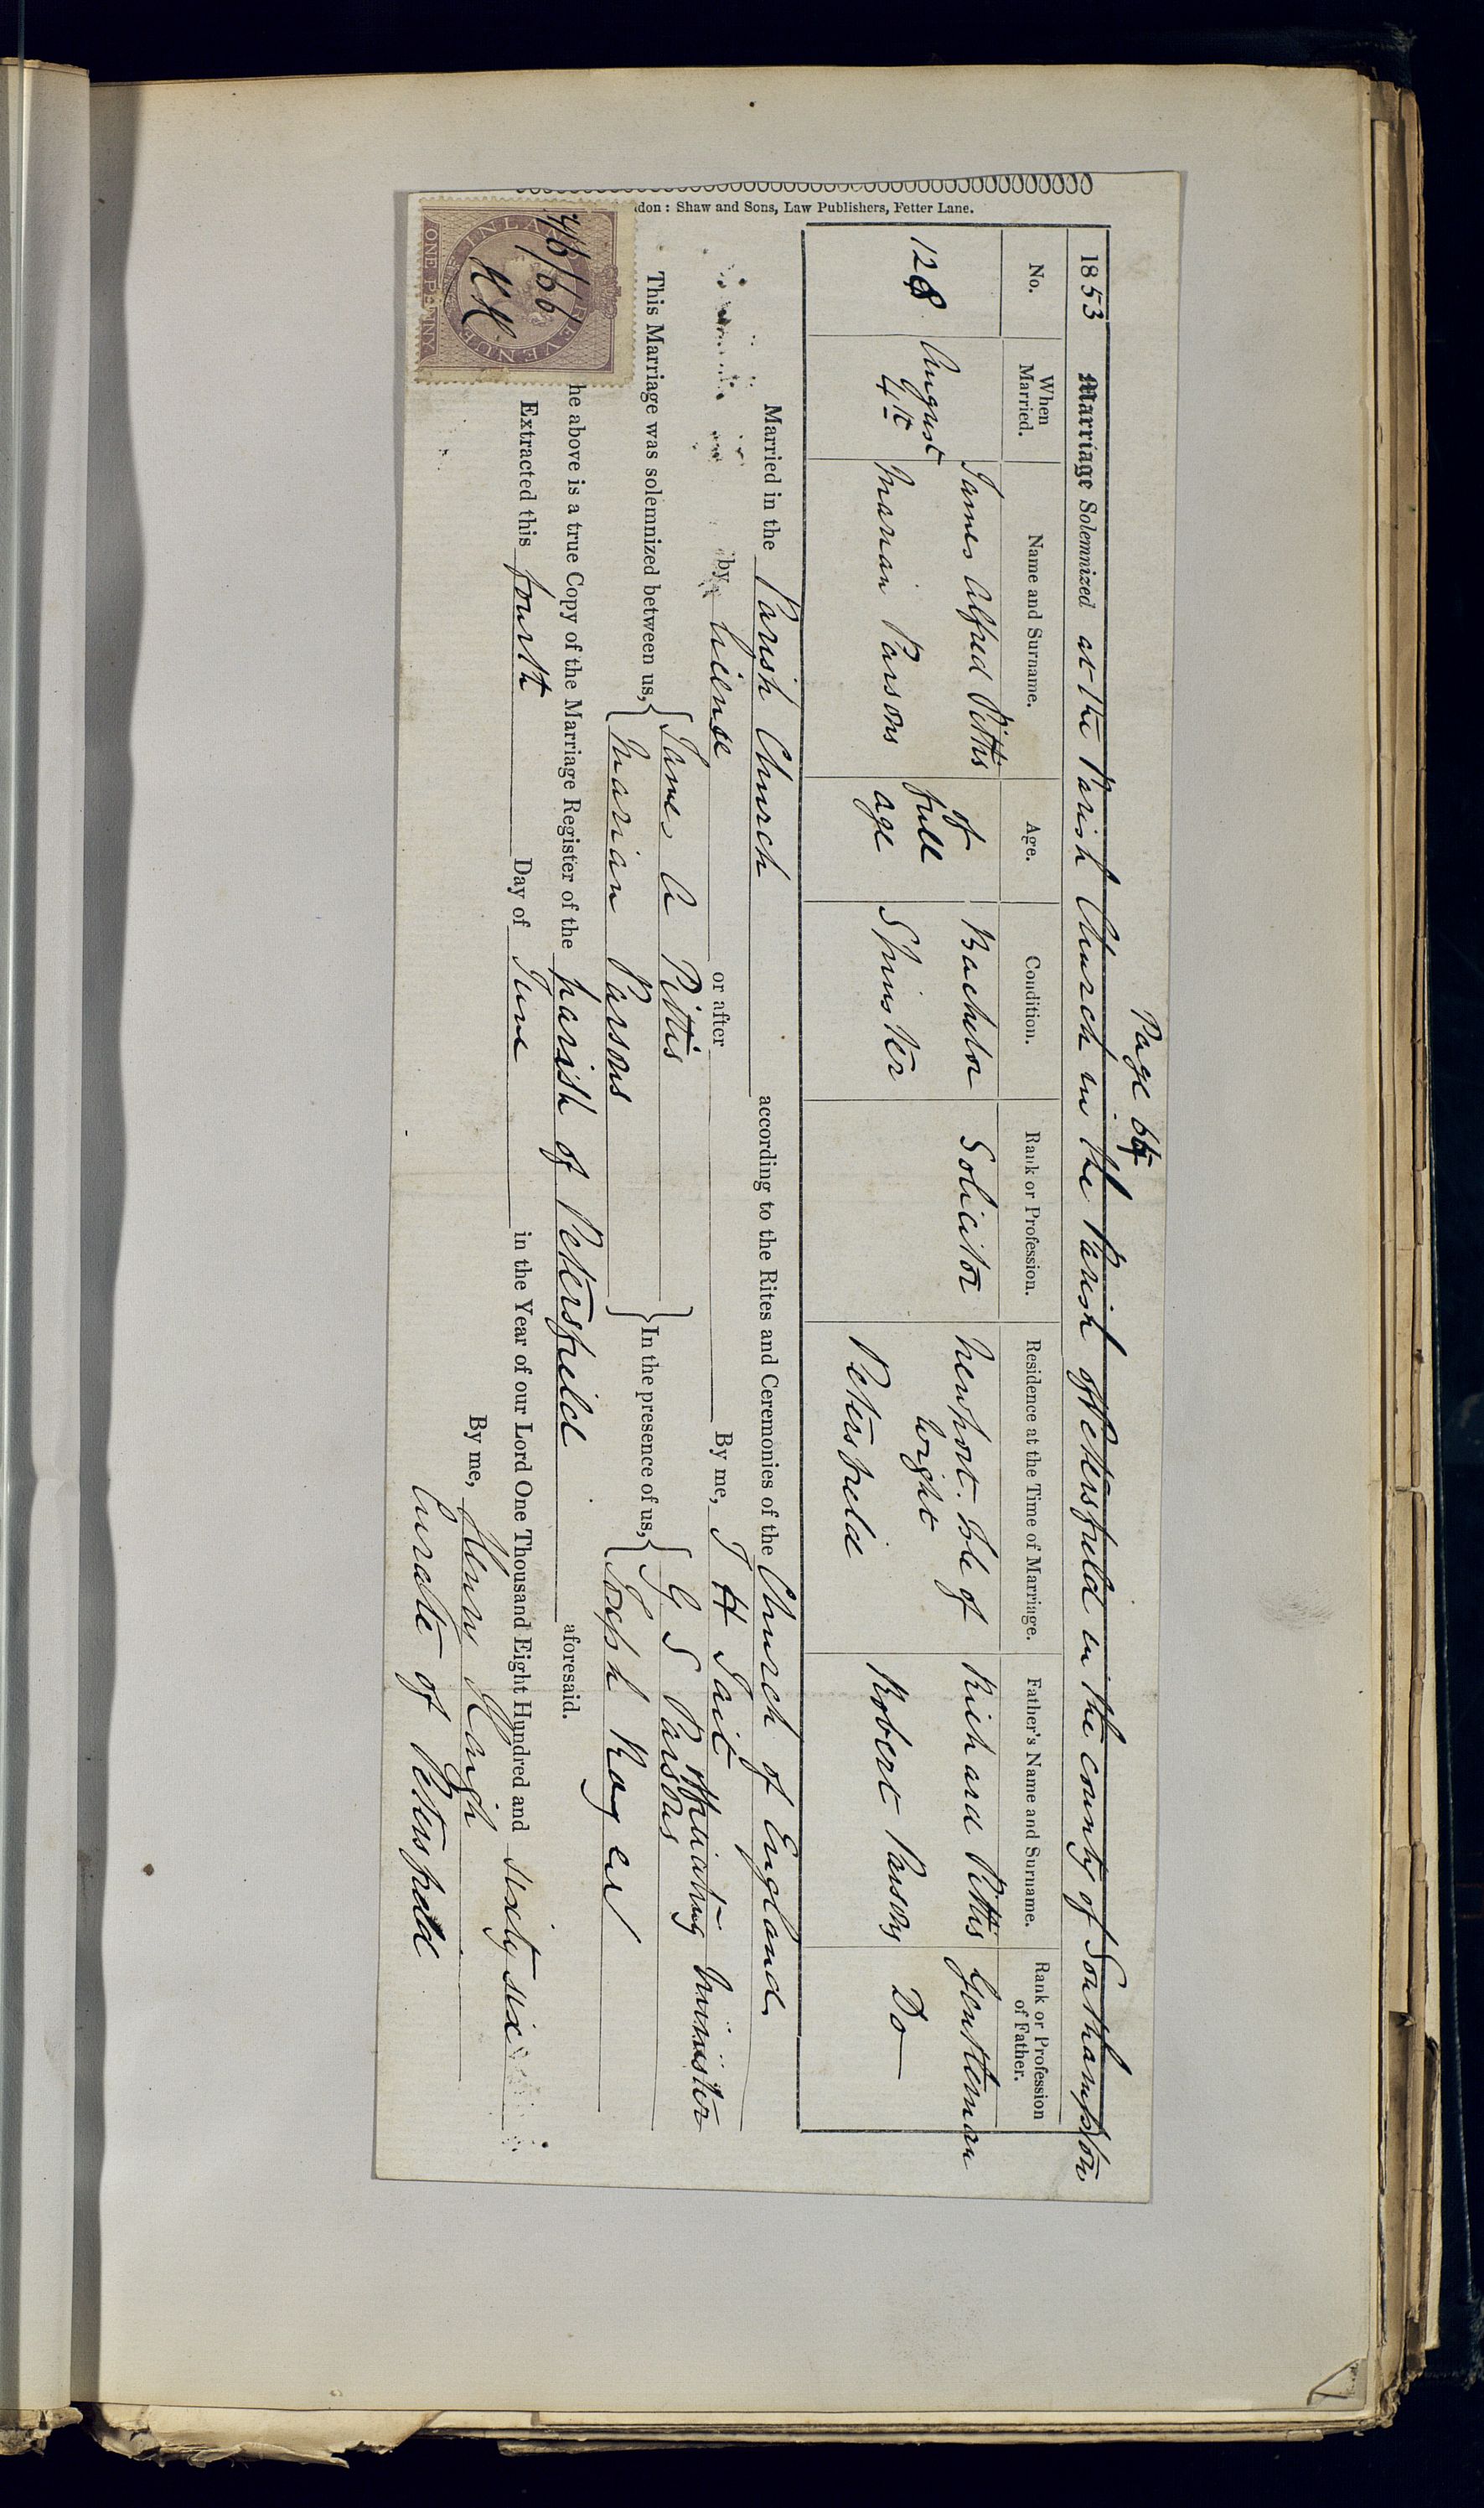 Page 64
1853 Marriage Solemnized at the Parish Church in the Parish of Petersfield in the county of Southampton
No. When Married. Name and Surname. Age. Condition. Rank or Profession. Residence at the Time of Marriage. Father's Name and Surname. Rank or Profession of Father.
128 August 4th James Alfred Pittis of full age Bachelor Solicitor Newport. Isle of Wight Richard Pittis Gentleman
Marian Parsons Spinster Petersfield Robert Parsons Do
Married in the Parish Church according to the Rites and Ceremonies of the Church of England.
by license or after By me, T H Tait officiating Minister
This Marriage was solemnized between us, { James A Pittis } In the presence of us, { G S Parsons
Marian Parsons Joseph Roger
he above is a true Copy of the Marriage Register of the parish of Petersfield aforesaid.
Extracted this fourth Day of June in the Year of our Lord One Thousand Eight Hundred and sixty six
By me, Henry Haigh
Curate of Petersfield
INLAND REVENUE
ONE PENNY
4/6/66
HH
don: Shaw and Sons, Law Publishers, Fetter Lane.